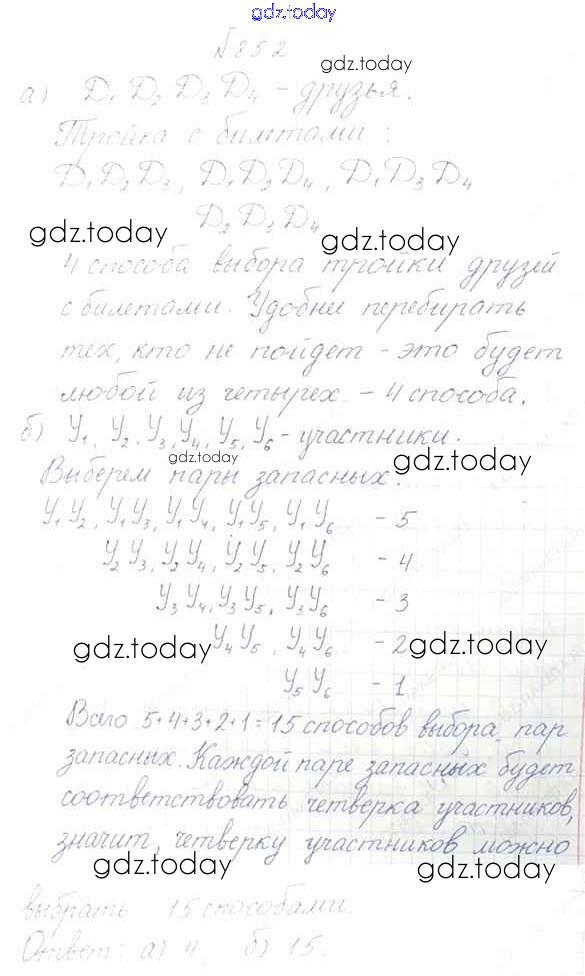 gdz.today
№852
gdz.today
а) Д₁ Д₂ Д₃ Д₄ – друзья.
Тройка с билетами:
Д₁Д₂Д₃, Д₁Д₂Д₄, Д₁Д₃Д₄
Д₂Д₃Д₄
gdz.today
gdz.today
4 способа выбора тройки друзей
с билетами. Удобней перебирать
тех, кто не пойдет – это будет
любой из четырех – 4 способа.
б) У₁, У₂, У₃, У₄, У₅, У₆ – участники.
gdz.today
gdz.today
Выберем пары запасных:
У₁У₂, У₁У₃, У₁У₄, У₁У₅, У₁У₆ – 5
У₂У₃, У₂У₄, У₂У₅, У₂У₆ – 4
У₃У₄, У₃У₅, У₃У₆ – 3
gdz.today
У₄У₅, У₄У₆ – 2
gdz.today
У₅У₆ – 1
Всего 5+4+3+2+1=15 способов выбора пар
запасных. Каждой паре запасных будет
соответствовать четверка участников,
значит, четверку участников можно
gdz.today
gdz.today
выбрать 15 способами.
Ответ: а) 4, б) 15.